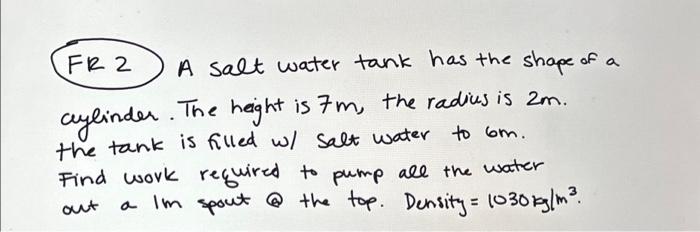 FR 2 A salt water tank has the shape of a
cylinder. The height is 7m, the radius is 2m.
the tank is filled w/ salt water to 6m.
Find work required to pump all the water
out a 1m spout @ the top. Density = 1030 kg/m³.